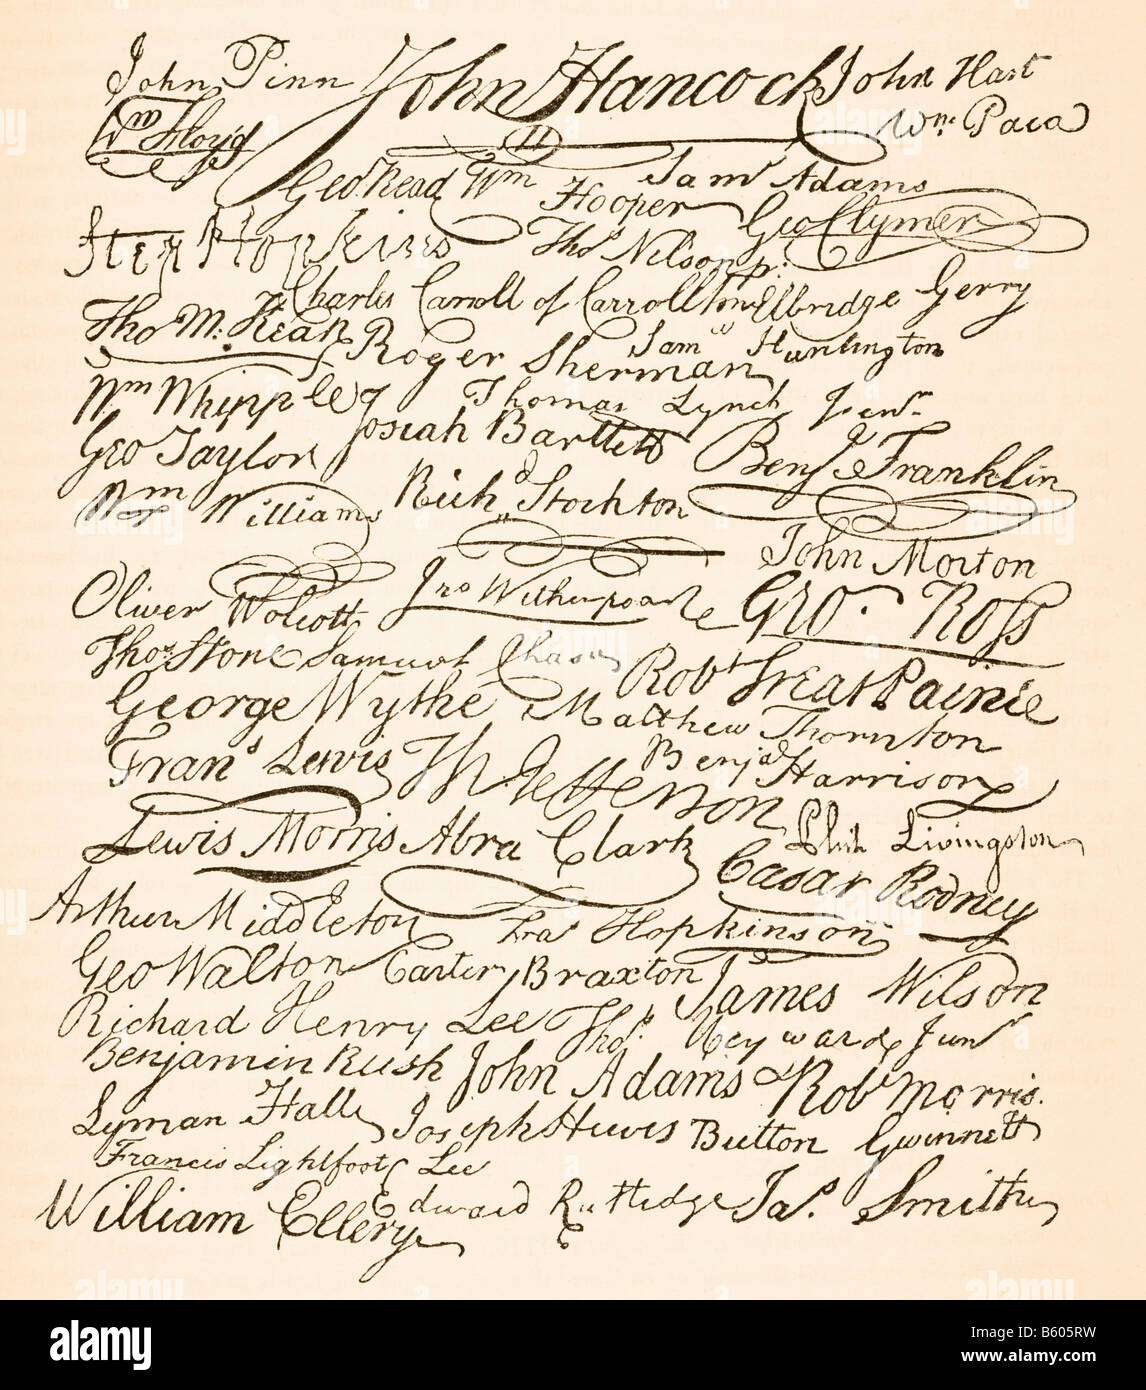 John Pinn John Hancock John Hart
Wm Floyd Wm. Paca
Geo. Read Wm Hooper Sam Adams
Geo Clymer
Step Hopkins Thos Nelson jr.
Charles Carroll of Carrollton Elbridge Gerry
Tho M: Kean Roger Sherman Sam Huntington
Wm Whipple Thomas Lynch Junr
Josiah Bartlett
Geo Taylor Benj Franklin
Wm Williams Richd Stockton
John Morton
Oliver Wolcott Jno Witherspoon Geo. Ross
Thos Stone Samuel Chase Robt Treat Paine
George Wythe Matthew Thornton
Frans Lewis Th Jefferson Benja Harrison
Lewis Morris Abra Clark Phil Livingston
Cæsar Rodney
Arthur Middleton Fras Hopkinson
Geo Walton Carter Braxton James Wilson
Richard Henry Lee Thos Heyward Junr
Benjamin Rush John Adams Robt Morris.
Lyman Hall Joseph Hewes Button Gwinnett
Francis Lightfoot Lee
William Ellery Edward Rutledge Jas. Smith
alamy
Image ID: B605RW
www.alamy.com